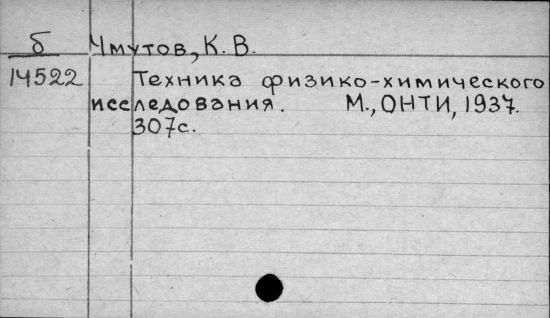 б Чмутов, К. В.
14522 Техника физико-химического
исследования. М., ОНТИ, 1937.
307с.